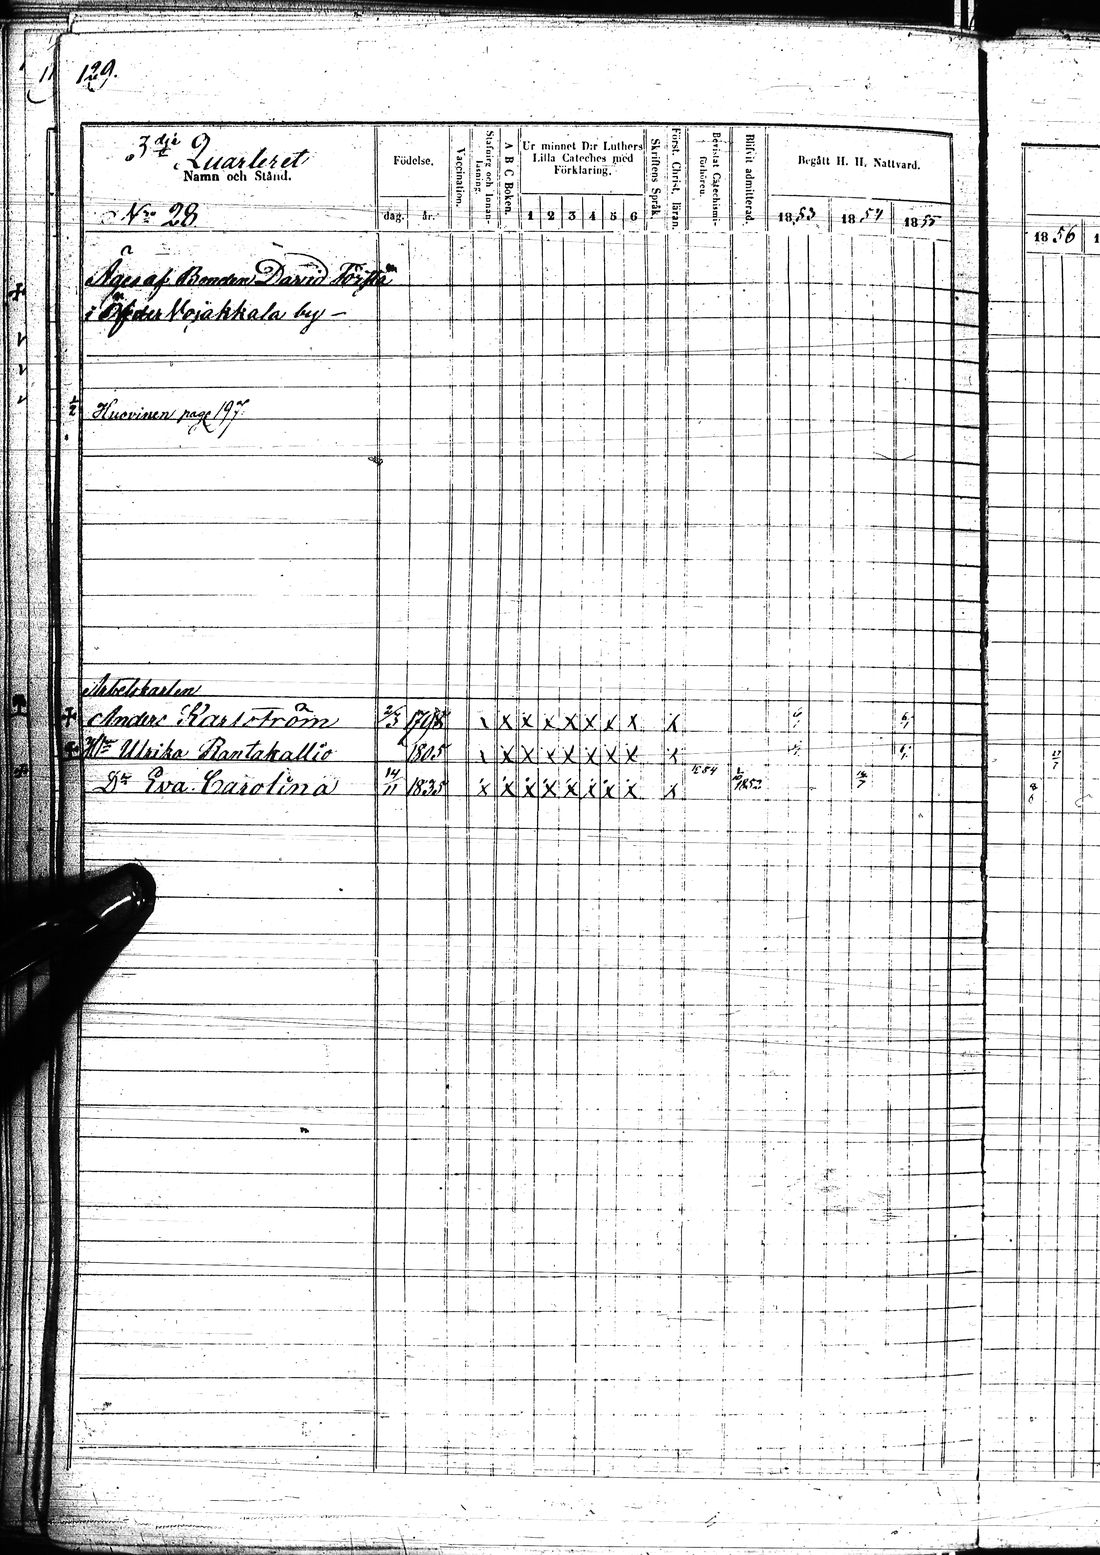 129.
3dje Quarteret
Namn och Stånd.
Nro 28
Födelse.
dag. år.
Vaccination.
Stafning och Innanläsning.
A B C Boken.
Ur minnet D:r Luthers
Lilla Cateches med
Förklaring.
1 2 3 4 5 6
Skriftens Språk.
Först. Christ. läran.
Bevistat Catechismiförhören.
Blifvit admitterad.
Begått H. H. Nattvard.
1853 1854 1855
1856
Äges af Bonden David
i Öfver Vojakkala by —
1/2 Huovinen page 197.
Arbetskarlen
Anders Karlström x x x x x x x x
Hu Ulrika Rantakallio 1805 x x x x x x x x
Dr Eva Carolina 14/11 1835 x x x x x x x x x